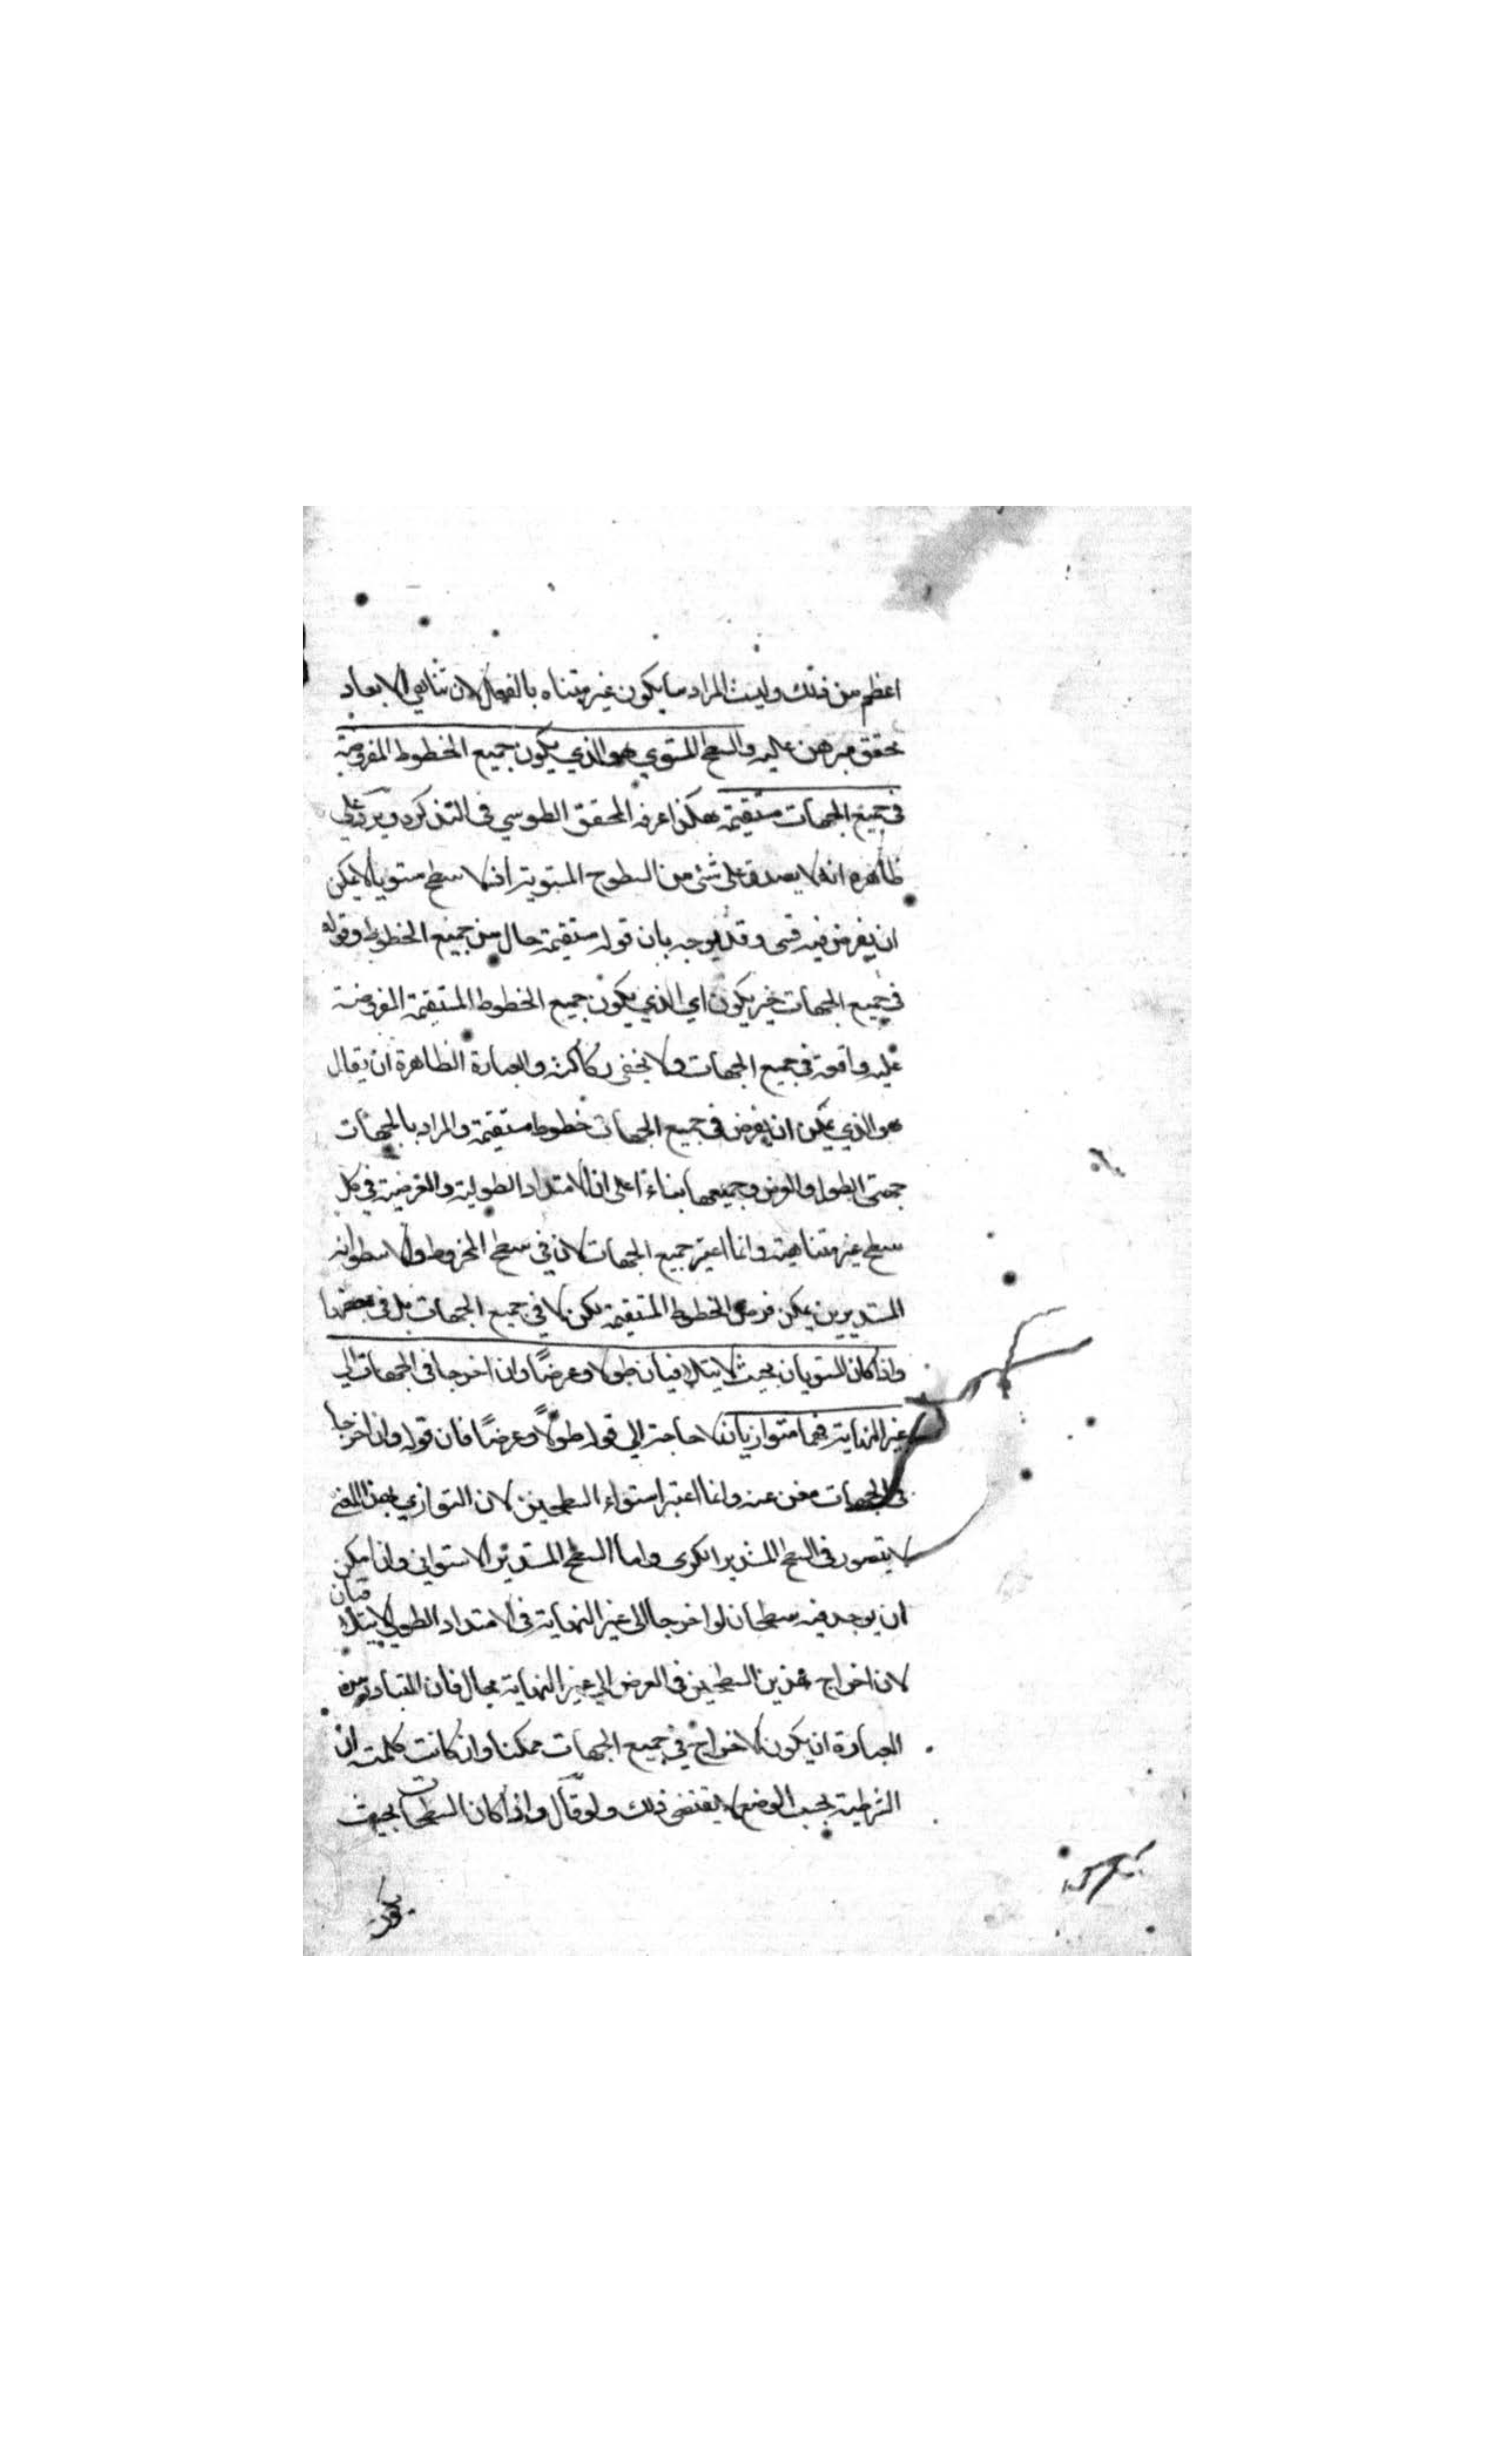 اعظم من ذلك وليت المراد ما يكون غير متناه بالفعل لان تناهي الابعاد
محقق مبرهن عليه والسطح المستوي هو الذي يكون جميع الخطوط المفروضة
في جميع الجهات مستقيمة هكذا عرفه المحقق الطوسي في التذكرة ويرد على
ظاهره انه لا يصدق على شئ من السطوح المستوية اذ لا سطح مستويا لا يمكن
ان يفرض فيه قسى وقد يوجه بان قوله مستقيمة حال من جميع الخطوط وقوله
في جميع الجهات خبر يكون اي الذي يكون جميع الخطوط المستقيمة المفروضة
عليه واقعة في جميع الجهات ولا يخفى ركاكته والعبارة الظاهرة ان يقال
هو الذي يمكن ان يفرض في جميع الجهات خطوط مستقيمة والمراد بالجهات
جهتي الطول والعرض وجميعها بناء على ان الامتداد الطولية والعرضية في كل
سطح غير متناهية وانما اعتبر جميع الجهات لان في سطح المخروط والاسطوانه
المستديرين يمكن فرض الخطوط المستقيمة لكن لا في جميع الجهات بل في بعضها
واذا كان المستويان بحيث لا يتلاقيان طولا وعرضًا وان اخرجا في الجهات الي
غير النهاية فهما متوازيان لا حاجة الي قوله طولًا وعرضًا فان قوله وان اخرجا
في الجهات مغن عنه وانما اعتبر استواء السطحين لان التوازي بهذا المعنى
لا يتصور في السطح المستدير الكرى واما السطح المستدير الاستواني وان امكن
ان يوجد فيه سطحان لو اخرجا الى غير النهاية في الامتداد الطولي لا يتلاقيان
لان اخراج هذين السطحين في العرض الي غير النهاية محال فان المتبادر من
العبارة ان يكون الاخراج في جميع الجهات ممكنا وان كانت كلمة ان
الشرطية بحسب الوضع لا يقتضى ذلك ولو قال واذا كان السطحان بحيث